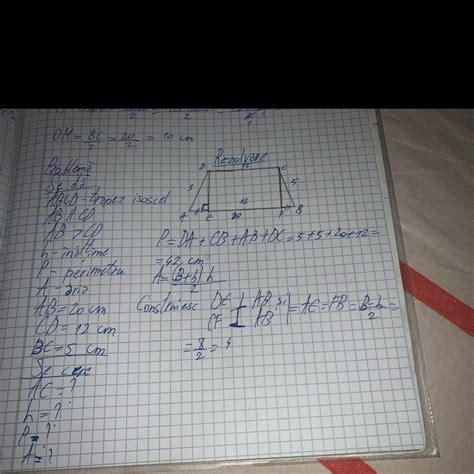 OM = BC/2 = 20/2 = 10 cm
Problemă
Se dă
ABCD - trapez isoscel
AB || CD
AB > CD
h = înălțime
P = perimetru
A = arie
AB = 20 cm
CD = 12 cm
BC = 5 cm
Se cere
AC = ?
h = ?
P = ?
A = ?
Rezolvare
D 12 C
5 5
12
A E F B
20
P = DA + CB + AB + DC = 5 + 5 + 20 + 12 =
= 42 cm
A = (B+b)/2 h
Construiesc DE ⊥ AB și
CF ⊥ AB = AE = FB = B-b/2 =
= 8/2 = 4